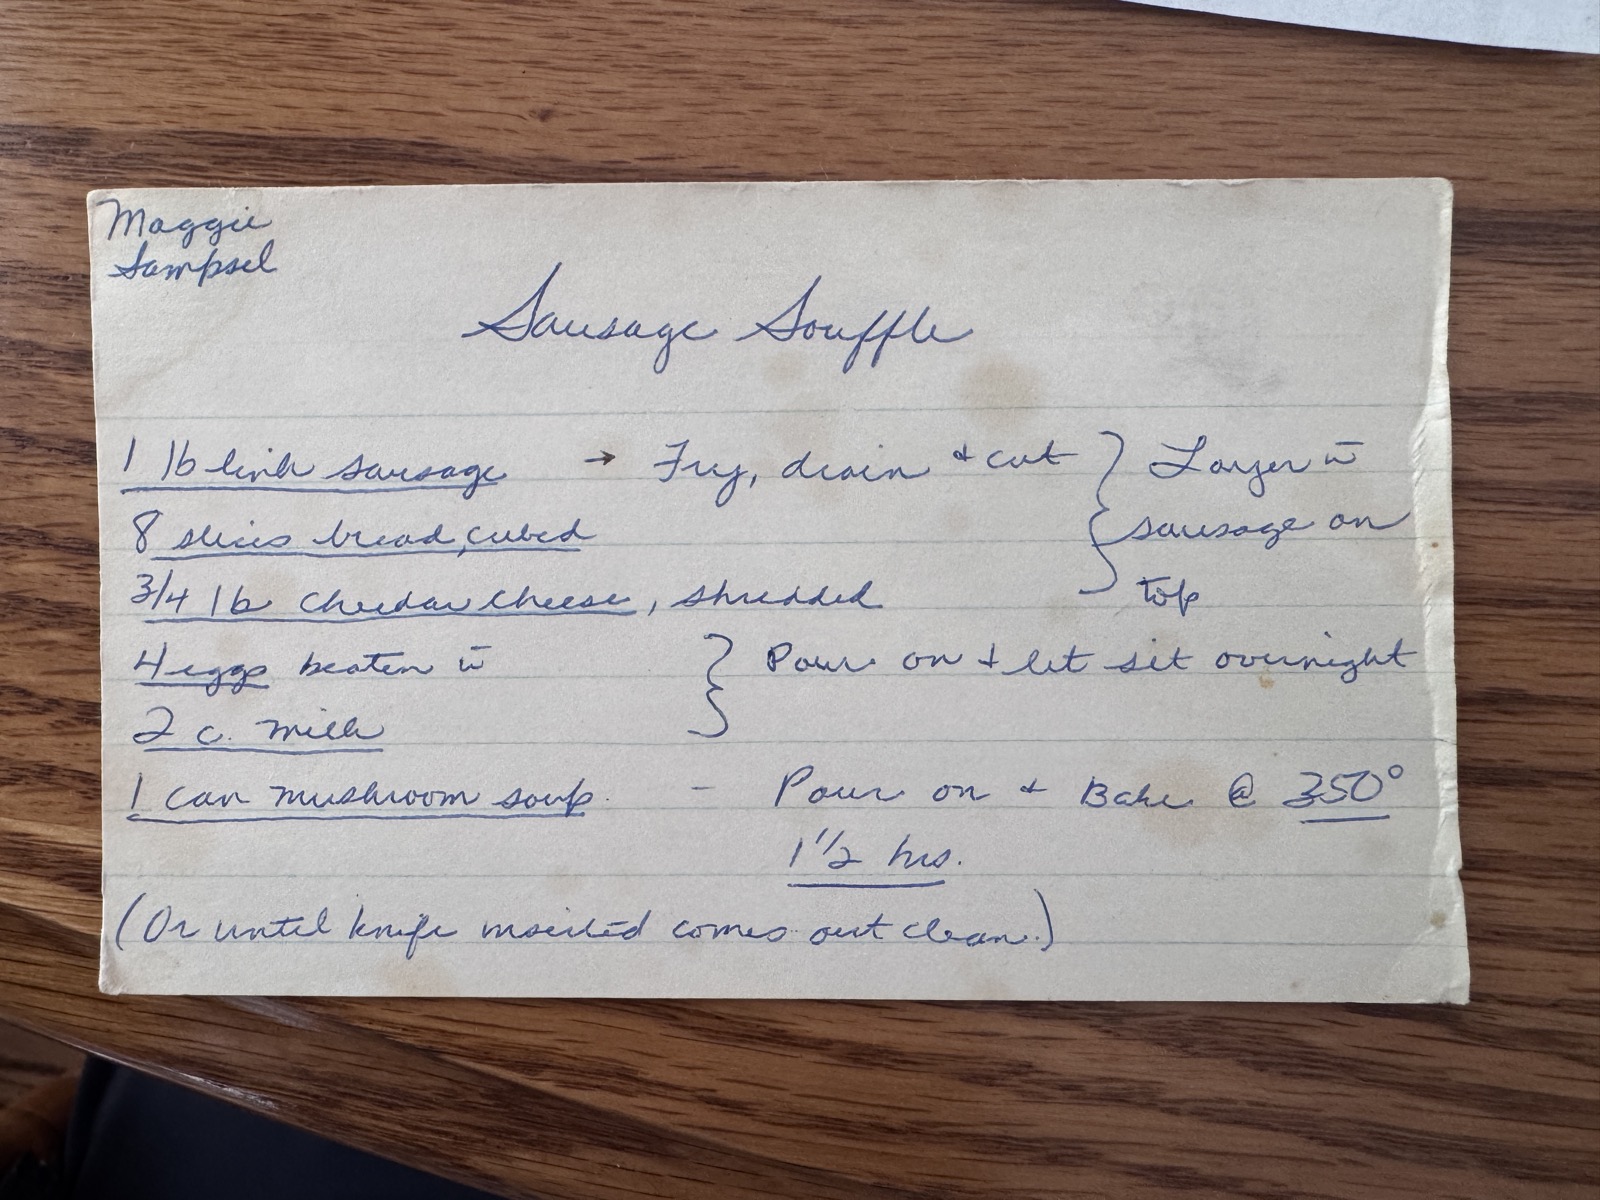 Maggie
Sampsel
Sausage Souffle
1 lb link sausage → Fry, drain & cut } Layer w̄
8 slices bread, cubed sausage on
3/4 lb Cheedar Cheese, shredded top
4 eggs beaten w̄ } Pour on & let sit overnight
2 c. milk
1 can mushroom soup. - Pour on & Bake @ 350°
1 1/2 hrs.
(Or until knife inserted comes out clean.)